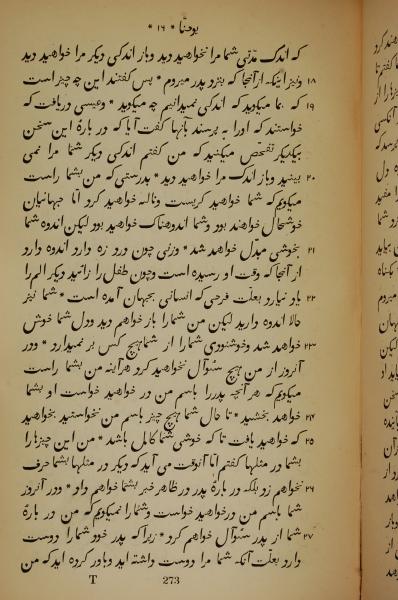 * یوحنّا * ۱۶ *
که اندک مدّتی شما مرا نخواهید دید وباز اندکی دیکر مرا خواهید دید
۱۸ ونیز اینکه ازآنجا که بنزد پدر میروم * پس کفتند این چه چیز است
۱۹ که بما میکوید که اندکی نمیدانیم چه میکوید * وعیسی دریافت که
خواستند که اورا به پرسند بآنها کفت آیا که در بارهٔ این سخن
بیکدیکر تفحّص میکنید که من کفتم اندکی دیکر شما مرا نمی
۲۰ بینید وباز اندک مرا خواهید دید * بدرستی که من بشما راست
میکویم که شما خواهید کریست وناله خواهید کرد امّا جهانیان
خوشحال خواهند بود وشما اندوهناک خواهید بود لیکن اندوه شما
۲۱ بخوشی مبدّل خواهد شد * وزنی چون درد زه دارد اندوه دارد
از آنجا که وقت او رسیده است وچون طفل را زائید دیکر الم را
۲۲ یاد نیارد بعلّت فرحی که انسانی بجهان آمده است * شما نیز
حالا اندوه دارید لیکن من شما را باز خواهم دید ودل شما خوش
۲۳ خواهد شد وخوشنودی شما را از شما هیچ کس بر نمیدارد * ودر
آنروز از من هیچ سئوال نخواهید کرد هرآینه من بشما راست
میکویم که هر آنچه پدررا باسم من در خواهید خواست او بشما
۲۴ خواهد بخشید * تا حال شما هیچ چیز باسم من نخواستید بخواهید
۲۵ که خواهید یافت تا که خوشی شما کامل باشد * من این چیزها را
بشما در مثلها کفتم امّا آنوقت می آید که دیکر در مثلها بشما حرف
۲۶ نخواهم زد بلکه در بارهٔ پدر در ظاهر خبر بشما خواهم داد * ودر آنروز
شما باسم من درخواهید خواست وشمارا نمیکویم که من در بارهٔ
۲۷ شما از پدر سئوال خواهم کرد * زیرا که پدر خود شما را دوست
دارد بعلّت آنکه شما مرا دوست داشته اید وباور کرده اید که من
T 273